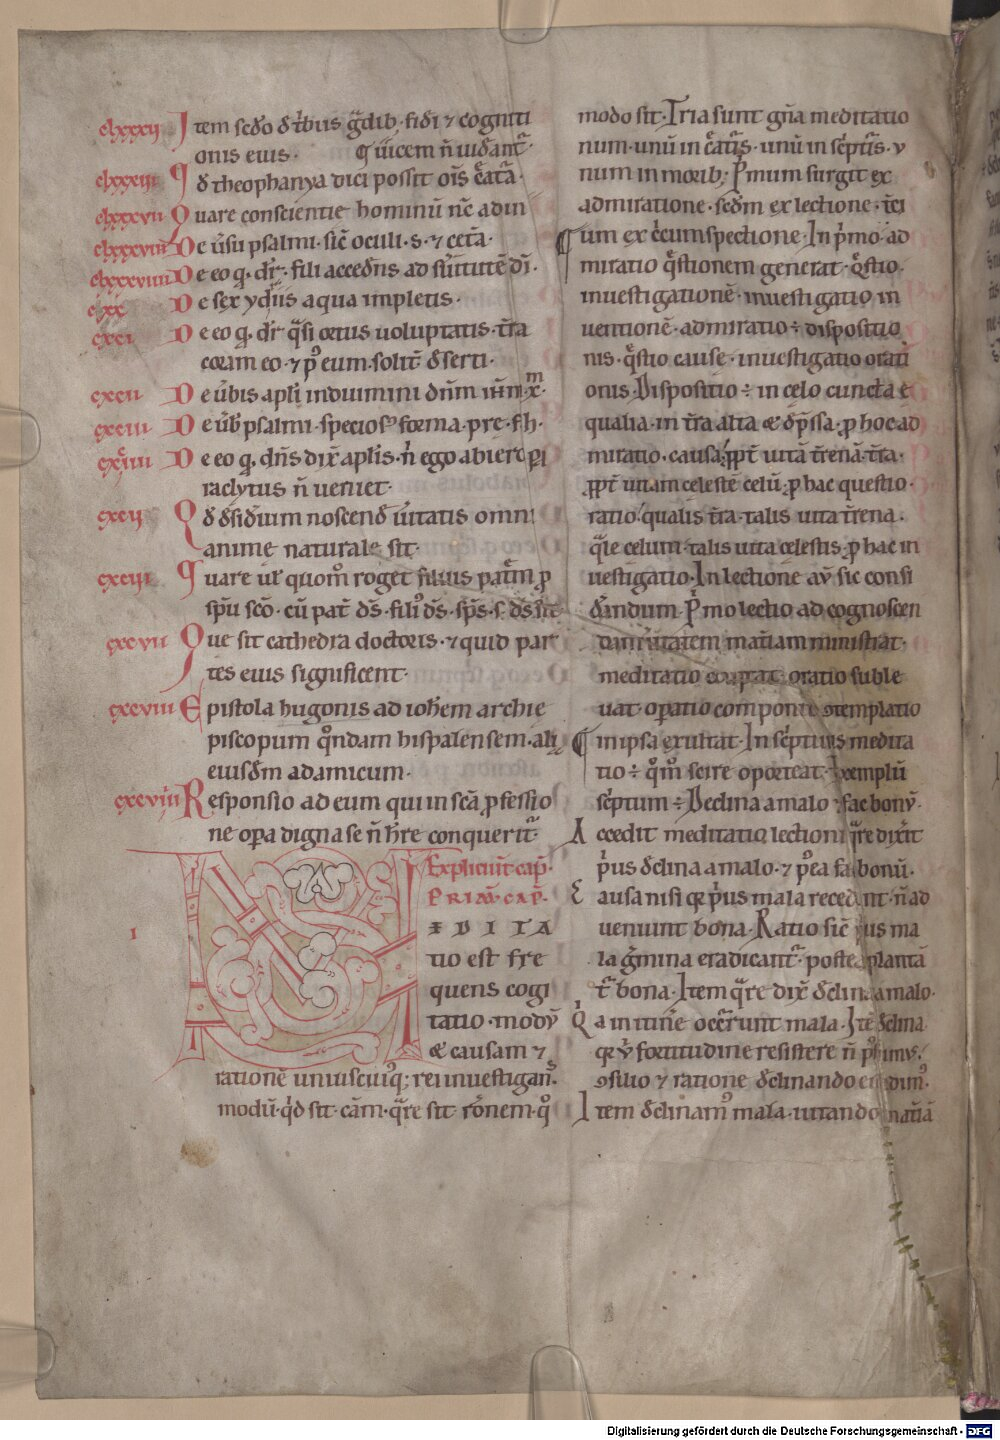 clxxxij Item scđo đ tͥbus gͣdib. fiđi ⁊ cogniti
onis eius. ¶ uicem ñ uiđant᷑.
clxxxiii Qđ theophanya dici possit oīs cͤatͣa.
clxxxvii Quare conscientie hominū nc̄ adin
clxxxviii De ūsu psalmi. sic̄ oculi. s. ⁊ ceta.
clxxxviiii De eo q̣. dr̄. fili acceđns ad sͥuitutē dī.
cxc De sex ydrͥis aqua impletis.
cxci De eo q̣. dr̄ qͣsi ortus uoluptatis. tͬra
coram eo. ⁊ p᷒ eum. solit̄. đserti.
cxcii De ūbis apli induimini dn̄m ihm xm̄.
cxciii De ūb̄ psalmi. speciosꝰ forma. pre. fh.
cxciiii De eo q̣. dn̄s dix̄ aplis. n̄ ego abiero pa
raclytus n̄ ueniet.
cxcv Qđ đsiđium noscenđ uͥitatis omni
anime naturale sit.
cxcvi Quare ul̄ quom̊ roget filius patr̄m ꝓ
spū scō. cū pat̄ đs. filiꝰ đs. sp̄s. s. đs sit
cxcvii Que sit cathedra doctoris. ⁊ quid par
tes eius significent.
cxcviii Epistola hugonis ad ioh̄em archie
piscopum qͦndam hispalensem. ali
eiusđm adamicum.
cxcviiii Responsio ad eum qui in scā ꝓfessio
ne opa digna se n̄ h̄re conquerit᷑.
Expliciunt cap̄.
PRIMŪ. CAP̄.
I MEDITA
tio est fre
quens cogi
tatio. modū
& causam ⁊
rationē uniuscuiꝰq; rei inuestigans.
modū. qͥd sit. cām. qͣre sit. rōnem. qͦ
modo sit. Tria sunt gn̄a meditatio
num. unū in cͤatͥs. unū in scͥptͥs. v
num in morib; Pͥmum surgit ex
admiratione. scđm ex lectione. tͨi
um ex cͥcumspectione. In pͥmo. ad
miratio qͣstionem generat. qͣstio.
inuestigationē. inuestigatio in
uentionē. admiratio ÷ dispositio
nis. qͣstio cause. inuestigatio orati
onis. Dispositio ÷ in celo cuncta eͤ
qualia. in tͬra alta & đp̄ssa. ꝓ hoc ad
miratio. causa. ꝓpt̄ uitā tͬrenā. tͬra.
ꝓpt̄ uitam celestē celū. ꝓ hac questio.
ratio. qualis tͬra. talis uita tͬrena.
qͣle celum. talis uita celestis. ꝓ hac in
uestigatio. In lectione aū sic consi
đandum. Pͥmo lectio ad cognoscen
dam uͥitatem mat̄iam ministrat.
meditatio coaptat. oratio suble
uat. opatio componit. ꝯtemplatio
¶ in ipsa exultat. In scͥpturis medita
tio ÷ qͦm̄ scire oporteat. Exemplū
scͥptum ÷ Declina a malo. ⁊ fac bonū.
Accedit meditatio lectioni. qͣre dixͥt
pͥus đclina a malo. ⁊ p᷒ea fac bonū.
Causa nisi qꝛ pͥus mala recedant. n̄ ad
ueniunt bona. Ratio sic̄ pͥus ma
la gͤmina eradicant᷑. postea plantā
t᷑ bona. Item qͣre dix̄ đclina a malo.
Qͥa in itinͤe occͬrunt mala. Itē đclina
qꝛ uͥ fortitudine resistere n̄ pͦsimus.
ꝯsilio ⁊ ratione đclinando euadimꝰ.
Item đclinamꝰ mala. uitando mat̄iā
Digitalisierung gefördert durch die Deutsche Forschungsgemeinschaft - DFG